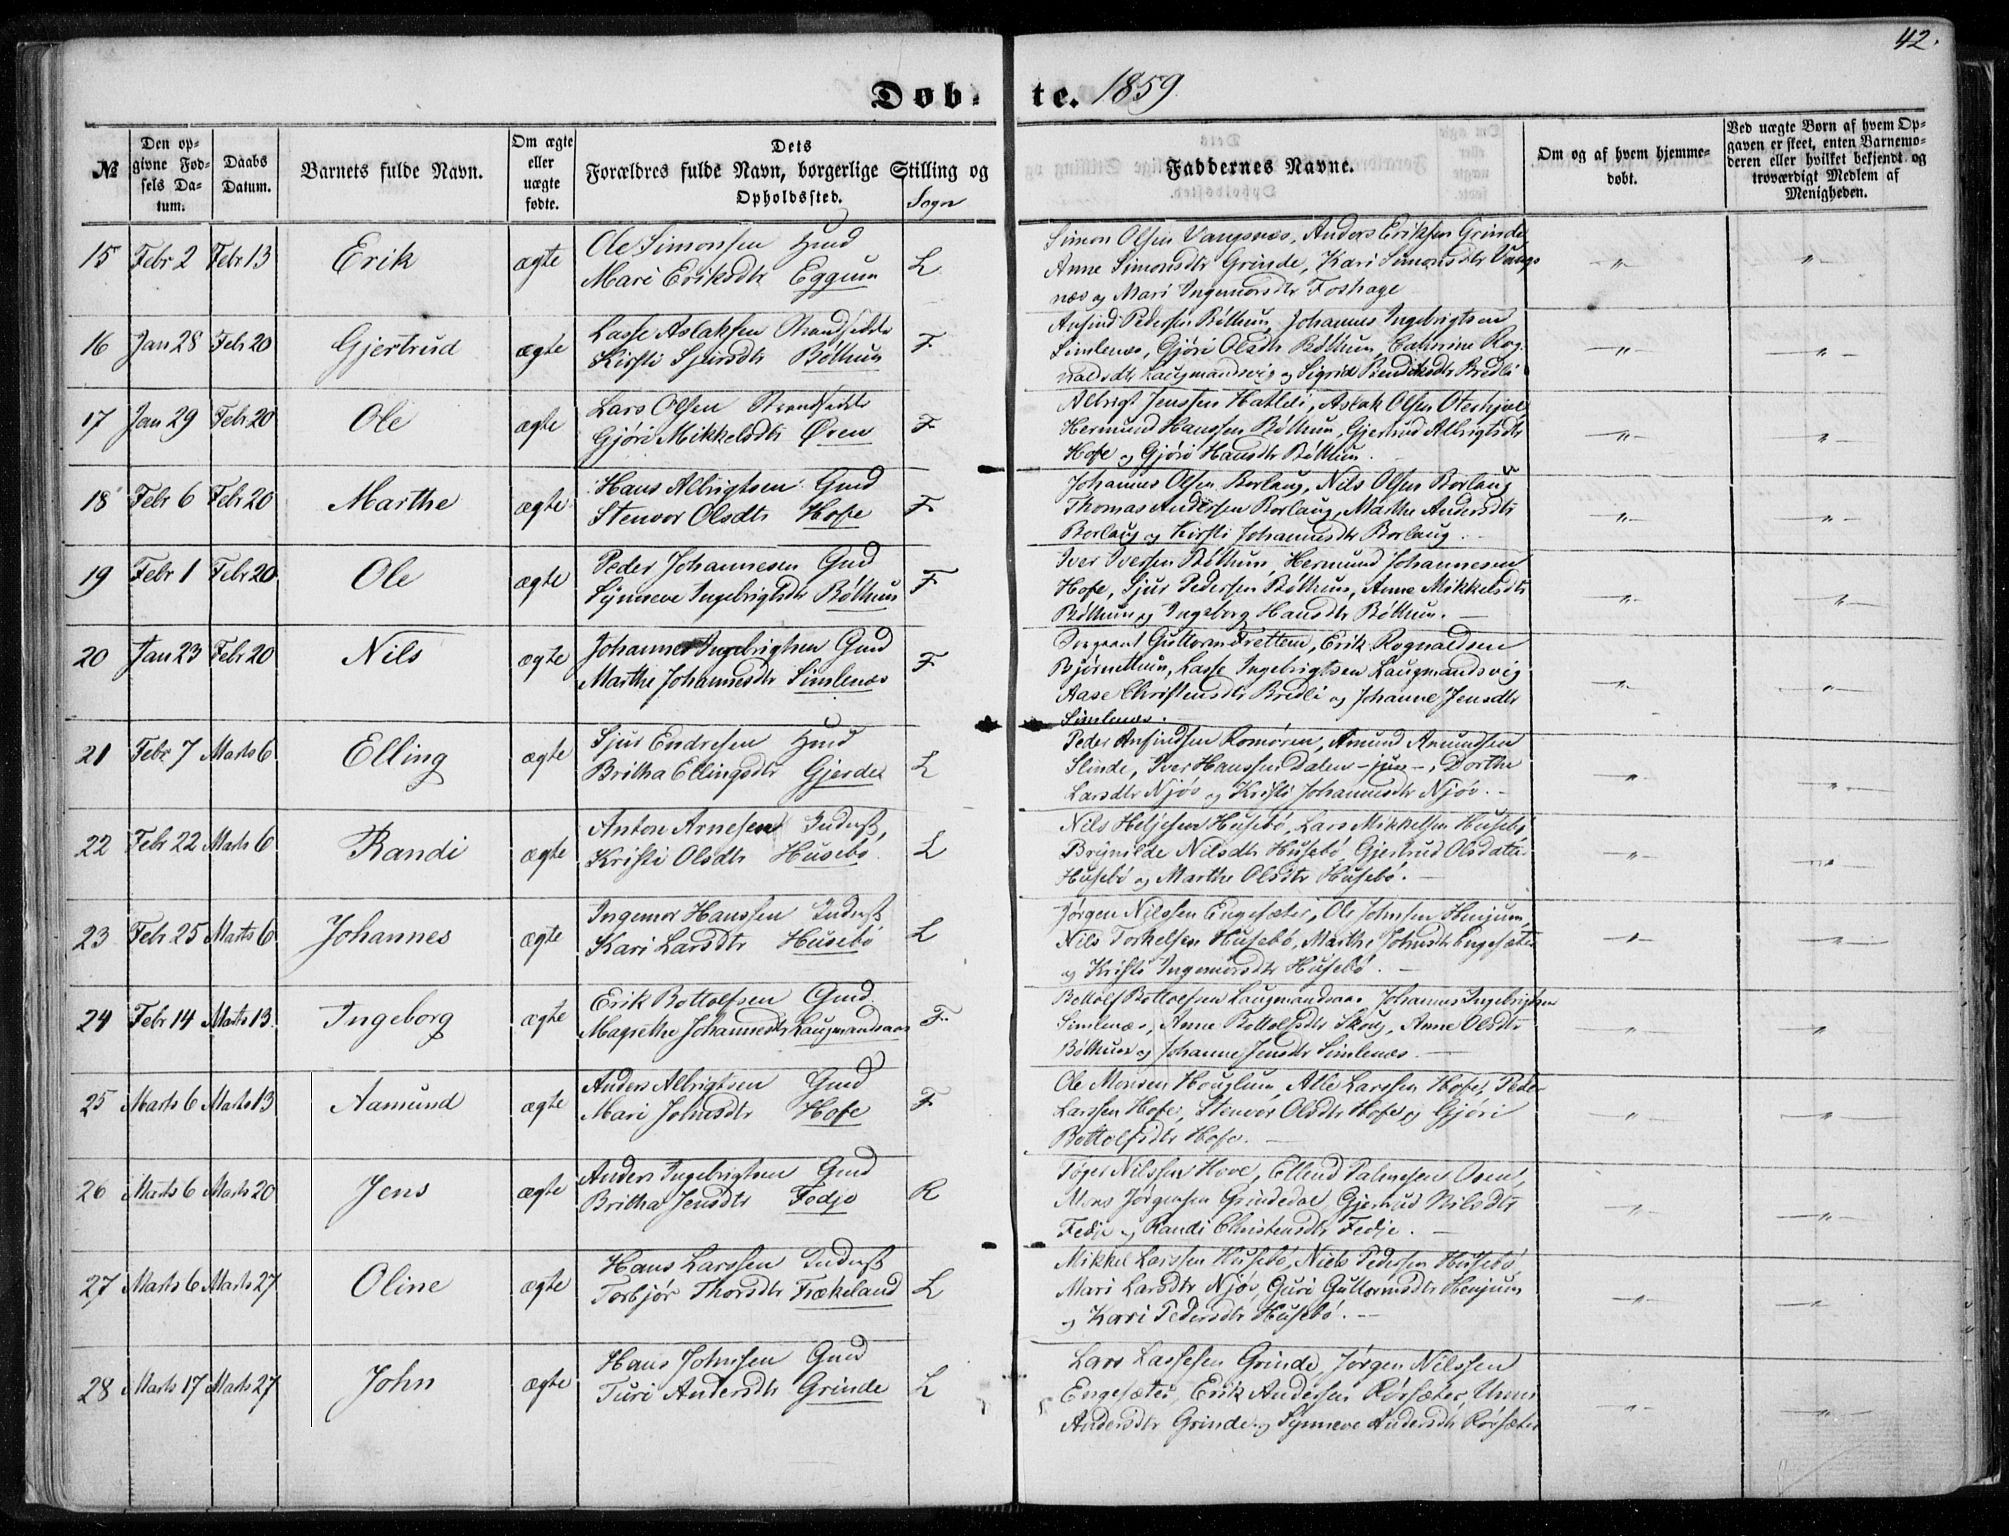 42.
Døbte. 1859
№
Den opgivne Fødsels Datum.
Daabs Datum.
Barnets fulde Navn.
Om ægte eller uægte fødte.
Dets Forældres fulde Navn, borgerlige Stilling og Opholdssted.
Sogn
Faddernes Navne.
Om og af hvem hjemmedøbt.
Ved uægte Børn af hvem Opgaven er skeet, enten Barnemoderen eller hvilket bekjendt og troværdigt Medlem af Menigheden.
15 Febr 2 Febr 13 Erik ægte Ole Simonsen Hmd
Mari Eriksdtr Eggum L
Simon Olsen Vangsnæs, Anders Eriksen Grinde
Anne Simonsdtr Grinde, Kari Simonsdtr Vangs
næs og Mari Ingemorsdtr Foshage
16 Jan 28 Febr 20 Gjertrud ægte Lasse Aslaksen Strandsidde
Kirsti Sjursdtr Bøthun F
Anfind Pedersen Bøthun, Johannes Ingebrigtsen
Simlenæs, Gjøri Olsdtr Bøthun, Cathrine Rog
naldsdtr Laugmandsvig og Sigrid Bendiksdtr Bredli
17 Jan 29 Febr 20 Ole ægte Lars Olsen Strandsidde
Gjøri Mikkelsdtr Øren F
Albrigt Jenssen Hatleli, Aslak Olsen
Hermund Hanssen Bøthun, Gjertrud Albrigtsdtr
Hofe og Gjøri Hansdtr Bøthun.
18 Febr 6 Febr 20 Marthe ægte Hans Albrigtsen Gmd
Stenvor Olsdtr Hofe F
Johannes Olsen Borlaug, Nils Olsen Borlaug
Thomas Andersen Borlaug, Marthe Andersdtr
Borlaug og Kirsti Johannesdtr Borlaug.
19 Febr 1 Febr 20 Ole ægte Peder Johannesen Gmd
Synneve Ingebrigtsdtr Bøthun F
Iver Iversen Bøthun, Hermund Johannesen
Hofe, Sjur Pedersen Bøthun, Anne Mikkelsdtr
Bøthun og Ingeborg Hansdtr Bøthun.
20 Jan 23 Febr 20 Nils ægte Johannes Ingebrigtsen Gmd
Marthe Johannesdtr Simlenæs F
Sergeant Guttorm Fretten, Erik Rognaldsen
Bjørnethun, Lasse Ingebrigtsen Laugmandsvig
Aase Christensdtr Bredli og Johanne Jensdtr
Simlenæs.
21 Febr 7 Marts 6 Elling ægte Sjur Endresen Hmd
Britha Ellingsdtr Gjerde L
Peder Anfindsen Romøren, Amund Amundsen
Slinde, Iver Hanssen Dalen - jun -, Dorthe
Larsdtr Njøs og Kristi Johannesdtr Njøs.
22 Febr 22 Marts 6 Randi ægte Anton Arnesen Inderst,
Kristi Olsdtr Husebø L
Nils Heljesen Husebø, Lars Mikkelsen Husebø
Brynilde Nilsdtr Husebø, Gjertrud Olsdatter
Husebø og Marthe Olsdtr Husebø.
23 Febr 25 Marts 6 Johannes ægte Ingemor Hanssen Inderst
Kari Larsdtr Husebø L
Jørgen Nilssen Engesæter, Ole Johnsen Henjum,
Nils Torkelsen Husebø, Marthe Johnsdtr Engesæter
og Kristi Ingemorsdtr Husebø.
24 Febr 14 Marts 13. Ingeborg ægte Erik Bottolfsen Gmd.
Magrethe Johannesdtr Laugmandsaas F.
Bottolf Bottolfsen Laugmandsaas Johannes Ingebrigtsen
Simlenæs, Anne Bottolfsdtr Skoug, Anne Olsdtr
Bøthun og Johanne Jensdtr Simlenæs.
25 Marts 6 Marts 13 Aamund ægte Anders Albrigtsen Gmd
Mari Johnsdtr Hofe F
Ole Monsen Houglum, Atle Larssen Hofe, Peder
Larssen Hofe, Stenvor Olsdtr Hofe og Gjøri
Bottolfsdtr Hofe.
26 Marts 6 Marts 20 Jens ægte Anders Ingebrigtsen Gmd
Britha Jensdtr Fedje R
Toger Nilssen Hove, Ellend Palmesen Osen,
Mons Jørgensen Grindedal Gjertrud Nilsdtr
Fedje og Randi Christensdtr Fedje.
27 Marts 6 Marts 27 Oline ægte Hans Larssen Inderst
Torbjør Thorsdtr Frækeland L
Mikkel Larssen Husebø, Niels Pedersen Husebø,
Mari Larsdtr Njøs, Guri Guttormsdtr Henjum
og Kari Pedersdtr Husebø.
28 Marts 17 Marts 27 John ægte Hans Johnsen Gmd
Turi Andersdtr Grinde L
Lars Lassesen Grinde, Jørgen Nilssen
Engesæter, Erik Andersen Rørsæter,
Andersdtr Grinde og Synneve Andersdtr Rørsæter